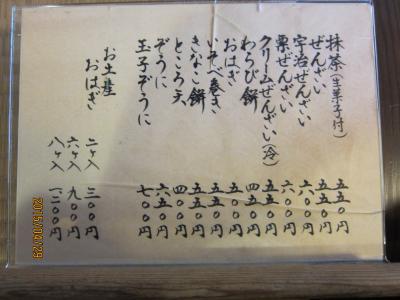 抹茶(生菓子付) 五五〇円
ぜんざい 五五〇円
宇治ぜんざい 六〇〇円
栗ぜんざい 六〇〇円
クリームぜんざい(冷) 五五〇円
わらび餅 五〇〇円
おはぎ 五〇〇円
いそべ巻き 五五〇円
きなこ餅 五五〇円
ところ天 四〇〇円
ぞうに 六五〇円
玉子ぞうに 七〇〇円
お土産
おはぎ 二ヶ入 三〇〇円
六ヶ入 九〇〇円
八ヶ入 一二〇〇円
2015/04/29